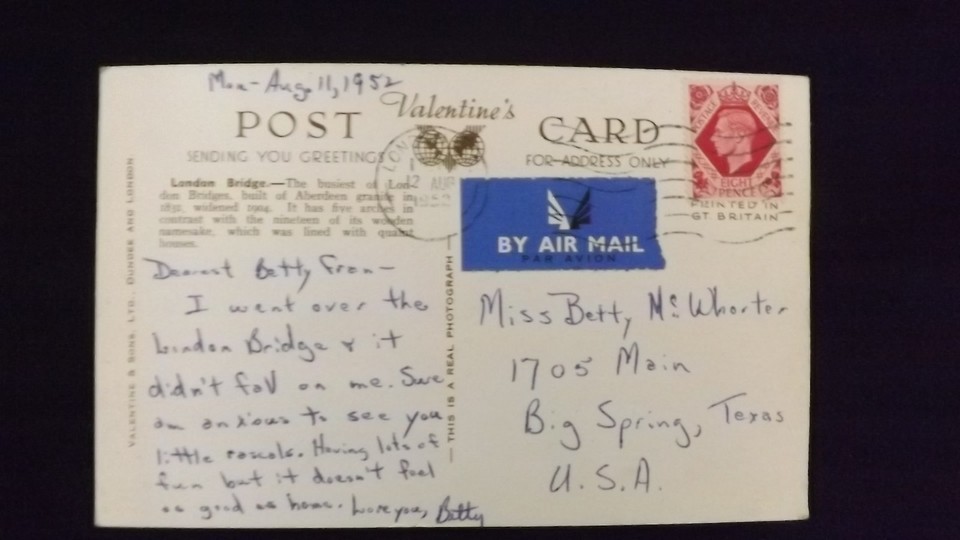 Mon- Aug. 11, 1952
Valentine's
POST CARD
SENDING YOU GREETINGS
FOR ADDRESS ONLY
LON
12 AUG
1952
POSTAGE REVENUE
EIGHT
PENCE
PRINTED IN
GT. BRITAIN
London Bridge.—The busiest of Lon-
don Bridges, built of Aberdeen granite in
1831, widened 1904. It has five arches in
contrast with the nineteen of its wooden
namesake, which was lined with quaint
houses.
BY AIR MAIL
PAR AVION
VALENTINE & SONS, LTD., DUNDEE AND LONDON
THIS IS A REAL PHOTOGRAPH
Dearest Betty Fran-
I went over the
London Bridge & it
didn't fall on me. Sure
am anxious to see you
little rascals. Having lots of
fun but it doesn't feel
as good as home. Love you, Betty
Miss Betty McWhorter
1705 Main
Big Spring, Texas
U.S.A.